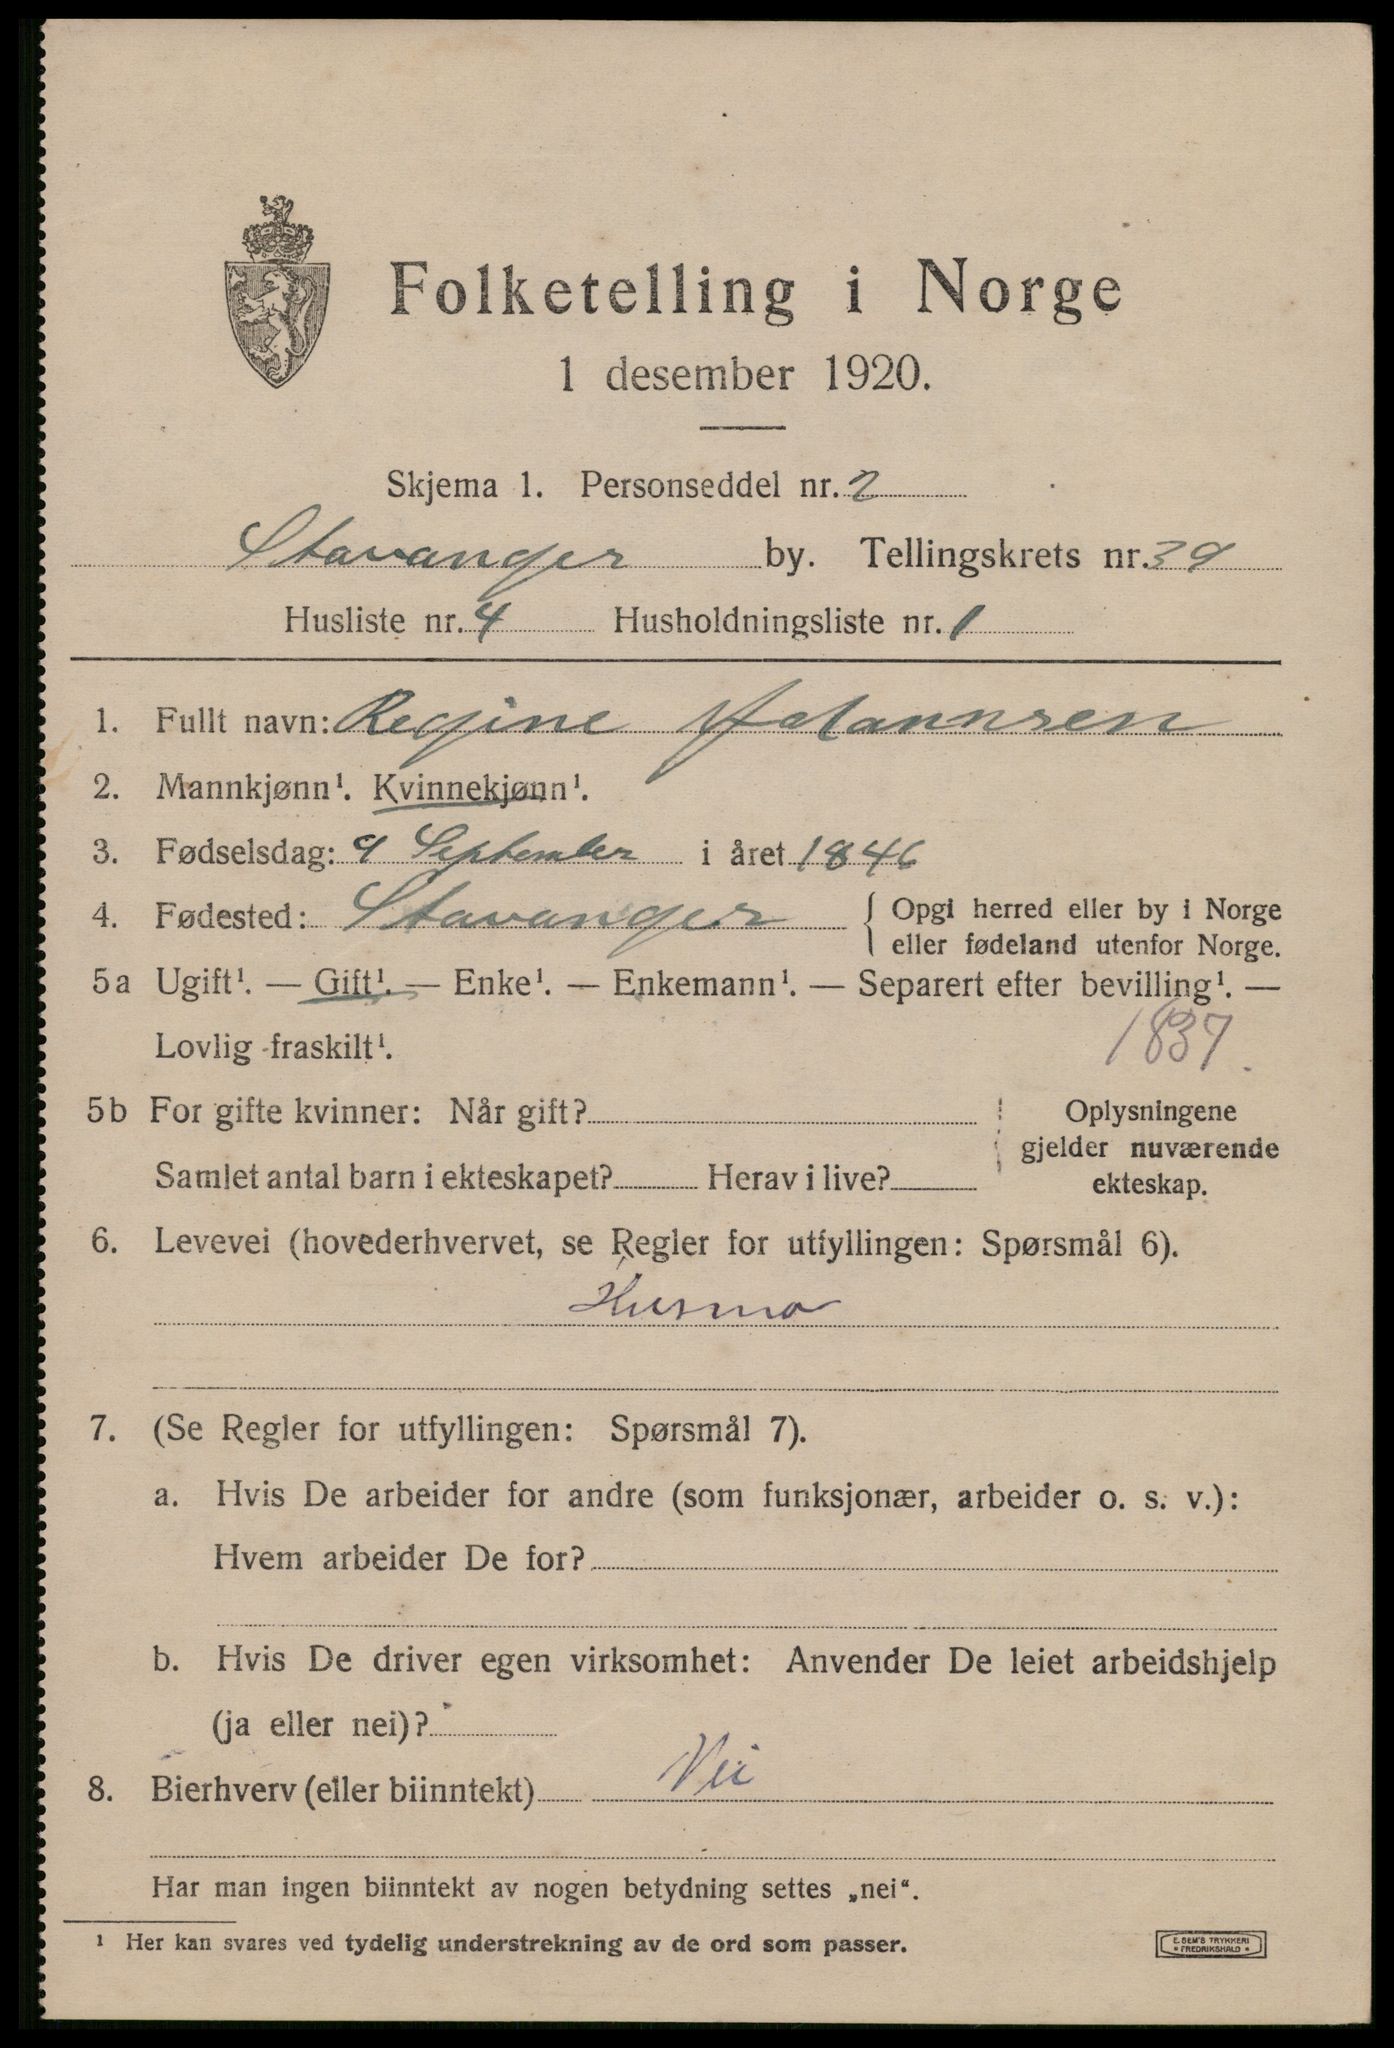 Folketelling i Norge
1 desember 1920.
Skjema 1. Personseddel nr. 2
Stavanger by. Tellingskrets nr. 39
Husliste nr. 4 Husholdningsliste nr. 1
1. Fullt navn: Regine Johannsen
2. Mannkjønn¹. Kvinnekjønn¹.
3. Fødselsdag: 9 September i året 1846
4. Fødested: Stavanger { Opgi herred eller by i Norge
eller fødeland utenfor Norge.
5a Ugift¹. — Gift¹. — Enke¹. — Enkemann¹. — Separert efter bevilling¹. —
Lovlig fraskilt¹. 1837.
5b For gifte kvinner: Når gift? Oplysningene
gjelder nuværende
Samlet antal barn i ekteskapet? Herav i live? ekteskap.
6. Levevei (hovederhvervet, se Regler for utfyllingen: Spørsmål 6).
Husmo
7. (Se Regler for utfyllingen: Spørsmål 7).
a. Hvis De arbeider for andre (som funksjonær, arbeider o. s. v.):
Hvem arbeider De for?
b. Hvis De driver egen virksomhet: Anvender De leiet arbeidshjelp
(ja eller nei)?
8. Bierhverv (eller biinntekt) Nei
Har man ingen biinntekt av nogen betydning settes „nei“.
¹ Her kan svares ved tydelig understrekning av de ord som passer.
E. SEM'S TRYKKERI
* FREDRIKSHALD *